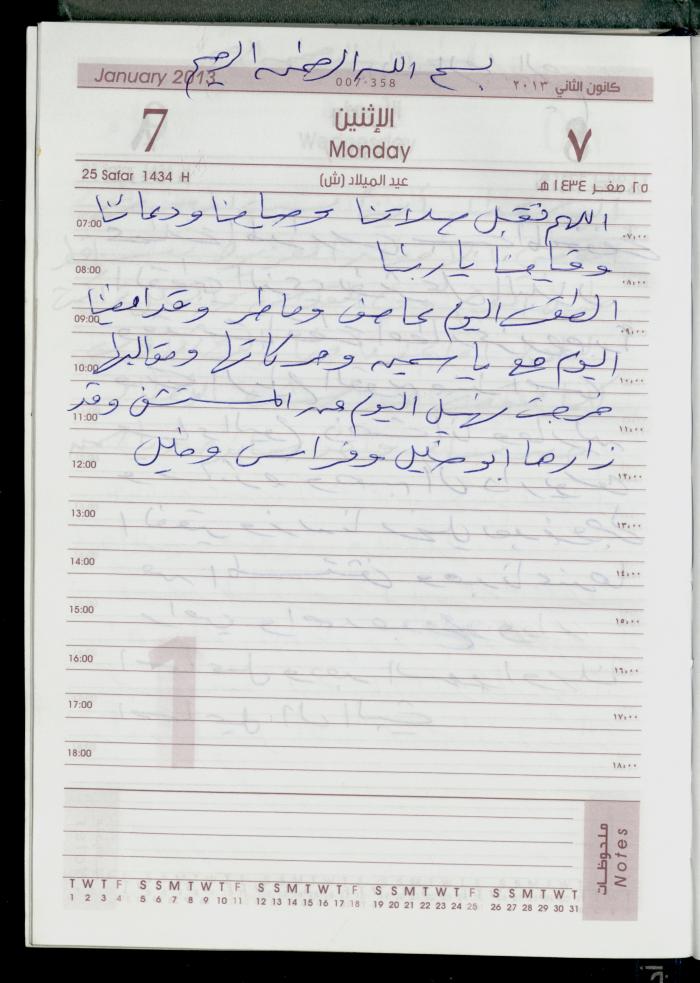 بسم الله الرحمن الرحيم
January 2013 007-358 كانون الثاني ٢٠١٣
7 الإثنين ٧
Monday
25 Safar 1434 H عيد الميلاد (ش) ٢٥ صفر ١٤٣٤ هـ
اللهم تقبل صلاتنا وصيامنا ودعائنا
07:00 ٠٧,٠٠
وقيامنا يا ربنا
08:00 ٠٨,٠٠
الطقس اليوم عاصف وماطر وقد امضينا
09:00 ٠٩,٠٠
اليوم مع ياسمين وحركاتها ومقالبها
10:00 ١٠,٠٠
خرجت اليوم من المستشفى وقد
11:00 ١١,٠٠
زارها ابو خليل وفراس وخليل
12:00 ١٢,٠٠
13:00 ١٣,٠٠
14:00 ١٤,٠٠
15:00 ١٥,٠٠
16:00 ١٦,٠٠
17:00 ١٧,٠٠
18:00 ١٨,٠٠
ملحوظات
Notes
T W T F S S M T W T F S S M T W T F S S M T W T F S S M T W T
1 2 3 4 5 6 7 8 9 10 11 12 13 14 15 16 17 18 19 20 21 22 23 24 25 26 27 28 29 30 31